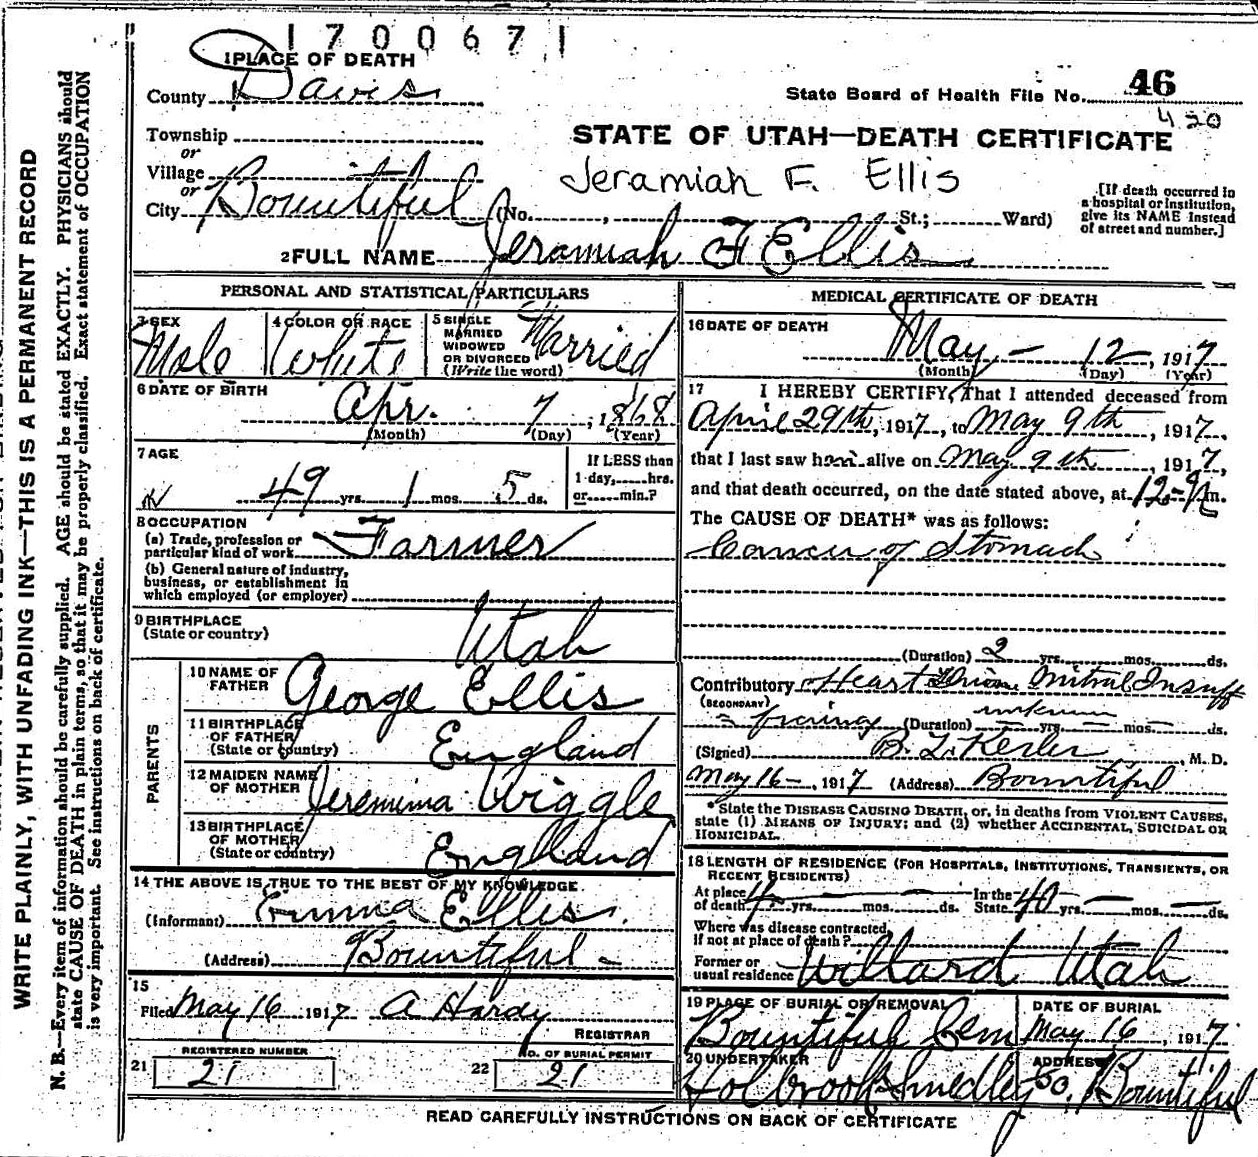 1700671
1 PLACE OF DEATH
County Davis
State Board of Health File No. 46
420
Township
or
Village
or
City Bountiful
STATE OF UTAH—DEATH CERTIFICATE
Jeramiah F. Ellis
(No. , St.; Ward)
[If death occurred in
a hospital or institution,
give its NAME instead
of street and number.]
2 FULL NAME Jeramiah F Ellis
PERSONAL AND STATISTICAL PARTICULARS
3 SEX
Male
4 COLOR OR RACE
White
5 SINGLE
MARRIED
WIDOWED
OR DIVORCED
(Write the word)
Married
6 DATE OF BIRTH
Apr. 7, 1868
(Month) (Day) (Year)
7 AGE
49 yrs. 1 mos. 5 ds.
If LESS than
1 day, hrs.
or min.?
8 OCCUPATION
(a) Trade, profession or
particular kind of work Farmer
(b) General nature of industry,
business, or establishment in
which employed (or employer)
9 BIRTHPLACE
(State or country)
Utah
PARENTS
10 NAME OF
FATHER
George Ellis
11 BIRTHPLACE
OF FATHER
(State or country)
England
12 MAIDEN NAME
OF MOTHER
Jeremima Wiggle
13 BIRTHPLACE
OF MOTHER
(State or country)
England
14 THE ABOVE IS TRUE TO THE BEST OF MY KNOWLEDGE.
(Informant) Emma Ellis.
(Address) Bountiful
15
Filed May 16 1917 A Hardy
REGISTRAR
REGISTERED NUMBER
21 21
NO. OF BURIAL PERMIT
22 21
MEDICAL CERTIFICATE OF DEATH
16 DATE OF DEATH
May - 12, 1917
(Month) (Day) (Year)
17 I HEREBY CERTIFY, That I attended deceased from
April 29th, 1917, to May 9th, 1917,
that I last saw him alive on May 9th, 1917,
and that death occurred, on the date stated above, at 12 m.
The CAUSE OF DEATH* was as follows:
Cancer of Stomach
(Duration) 2 yrs. mos. ds.
Contributory Heart Mitral Insuff
(SECONDARY)
(Duration) unknown yrs. mos. ds.
(Signed) B. L. Kesler, M. D.
May 16 - , 1917 (Address) Bountiful
*State the DISEASE CAUSING DEATH, or, in deaths from VIOLENT CAUSES,
state (1) MEANS OF INJURY; and (2) whether ACCIDENTAL, SUICIDAL OR
HOMICIDAL.
18 LENGTH OF RESIDENCE (FOR HOSPITALS, INSTITUTIONS, TRANSIENTS, OR
RECENT RESIDENTS)
At place
of death 4 yrs. mos. ds.
In the
State 40 yrs. mos. ds.
Where was disease contracted,
If not at place of death?
Former or
usual residence Willard Utah
19 PLACE OF BURIAL OR REMOVAL
Bountiful Cem
DATE OF BURIAL
May 16, 1917
20 UNDERTAKER
Holbrook & Smedley
ADDRESS
So. Bountiful
READ CAREFULLY INSTRUCTIONS ON BACK OF CERTIFICATE
WRITE PLAINLY, WITH UNFADING INK—THIS IS A PERMANENT RECORD
N. B.—Every item of information should be carefully supplied. AGE should be stated EXACTLY. PHYSICIANS should
state CAUSE OF DEATH in plain terms, so that it may be properly classified. Exact statement of OCCUPATION
is very important. See instructions on back of certificate.